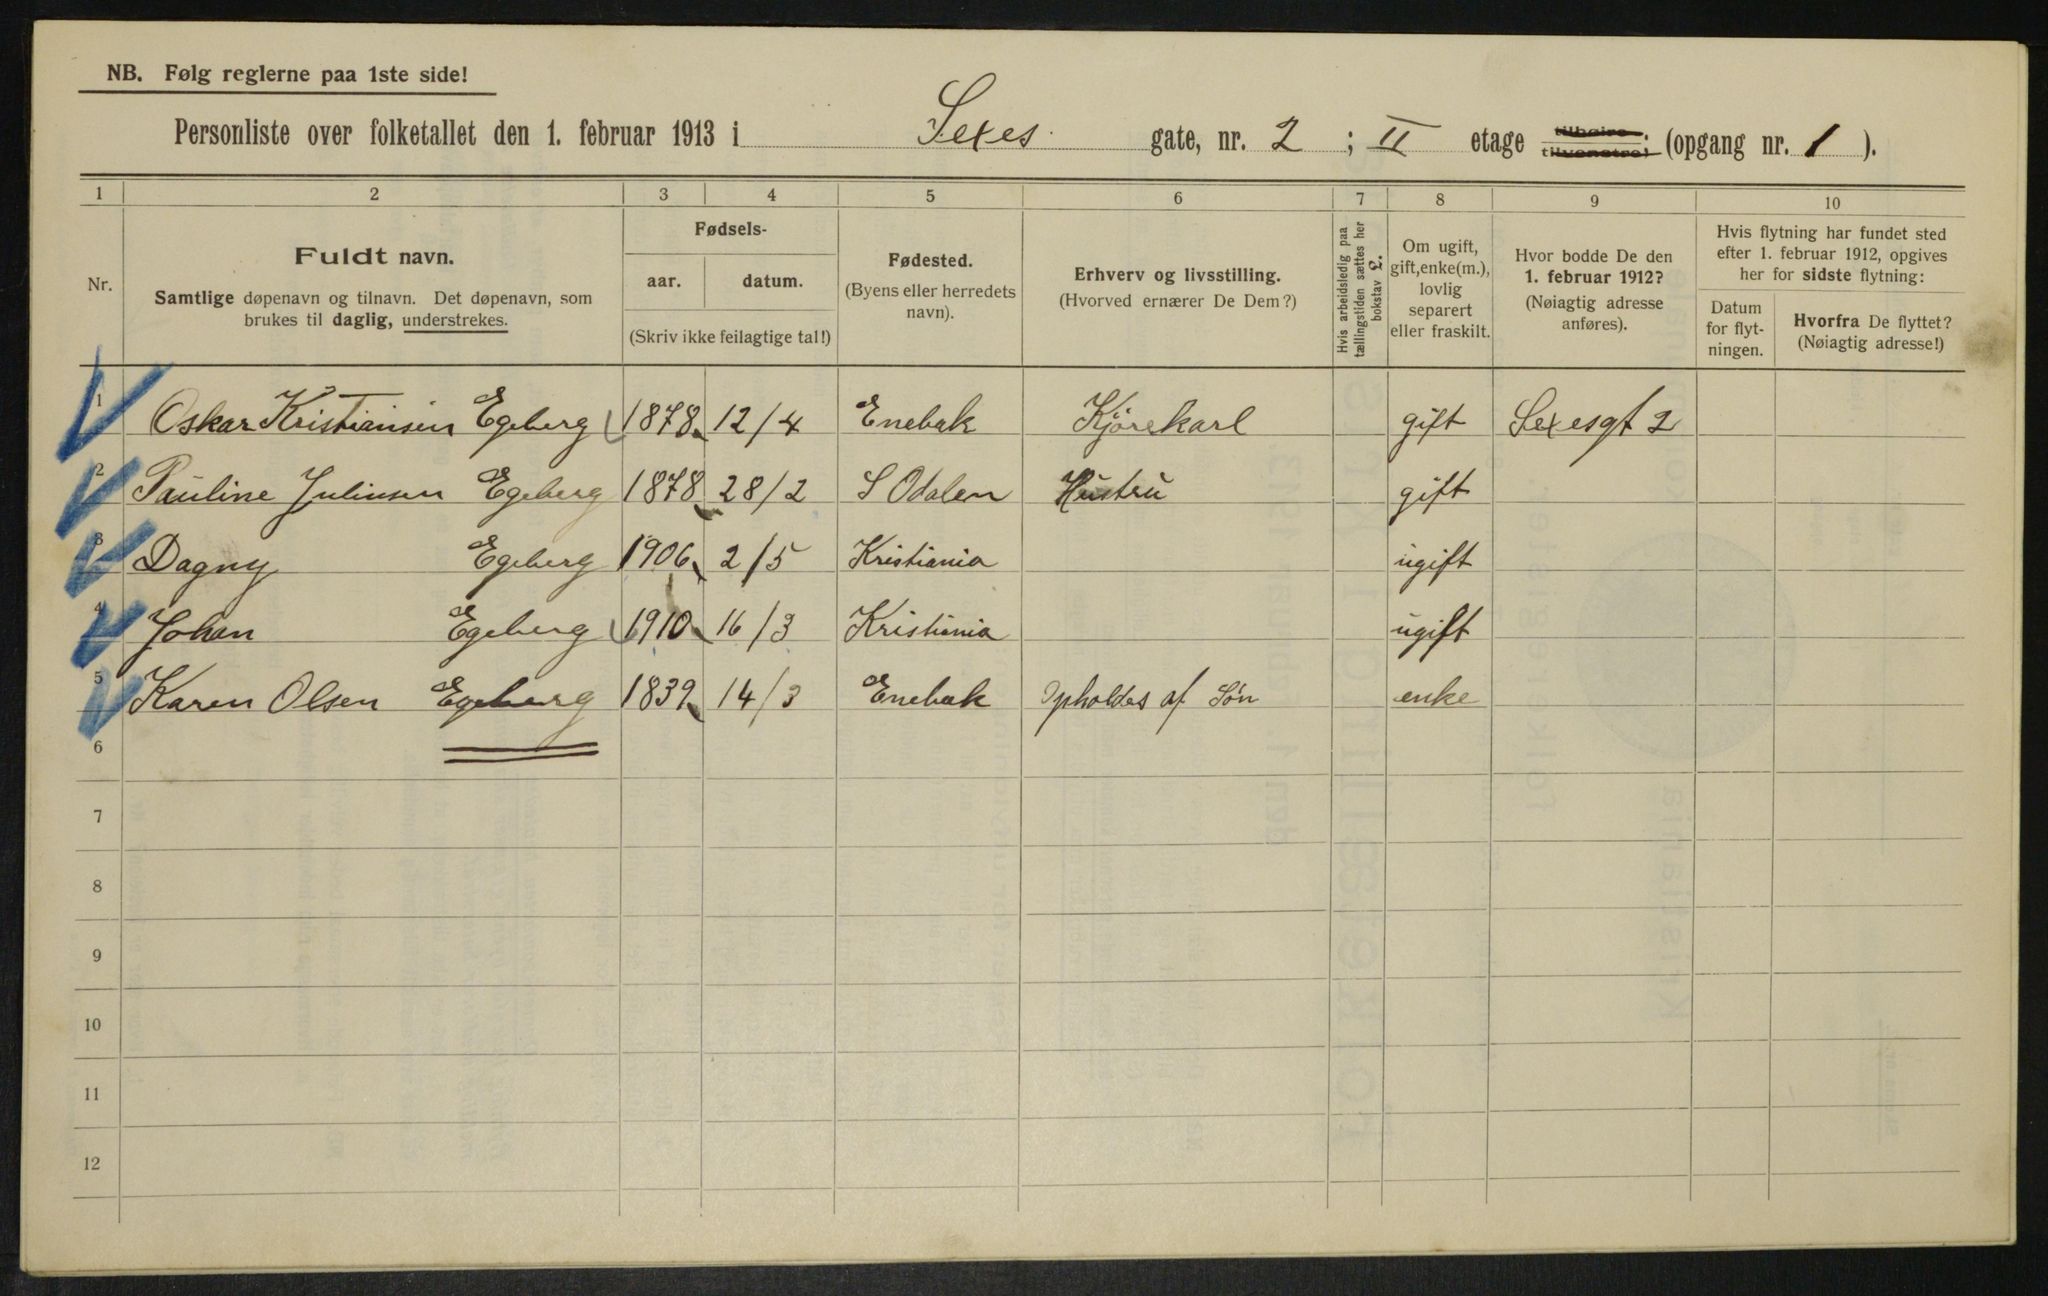 NB. Følg reglerne paa 1ste side!
Personliste over folketallet den 1. februar 1913 i Sexes gate, nr. 2 ; II etage tilhøire tilvenstre (opgang nr. 1 ).
1 2 3 4 5 6 7 8 9 10
Nr.
Fuldt navn.
Samtlige døpenavn og tilnavn. Det døpenavn, som
brukes til daglig, understrekes.
Fødsels-
aar. datum.
(Skriv ikke feilagtige tal!)
Fødested.
(Byens eller herredets
navn).
Erhverv og livsstilling.
(Hvorved ernærer De Dem?)
Hvis arbeidsledig paa
tællingstiden sættes her
bokstav L.
Om ugift,
gift, enke(m.),
lovlig
separert
eller fraskilt.
Hvor bodde De den
1. februar 1912?
(Nøiagtig adresse
anføres).
Hvis flytning har fundet sted
efter 1. februar 1912, opgives
her for sidste flytning:
Datum
for flyt-
ningen.
Hvorfra De flyttet?
(Nøiagtig adresse!)
1 Oskar Kristiansen Egeberg 1878 12/4 Enebak Kjørekarl gift Sexesgt 2
2 Pauline Juliusen Egeberg 1878 28/2 S Odalen Hustru gift
3 Dagny Egeberg 1906 2/5 Kristiania ugift
4 Johan Egeberg 1910 16/3 Kristiania ugift
5 Karen Olsen Egeberg 1839 14/3 Enebak Opholdes af Søn enke
6
7
8
9
10
11
12